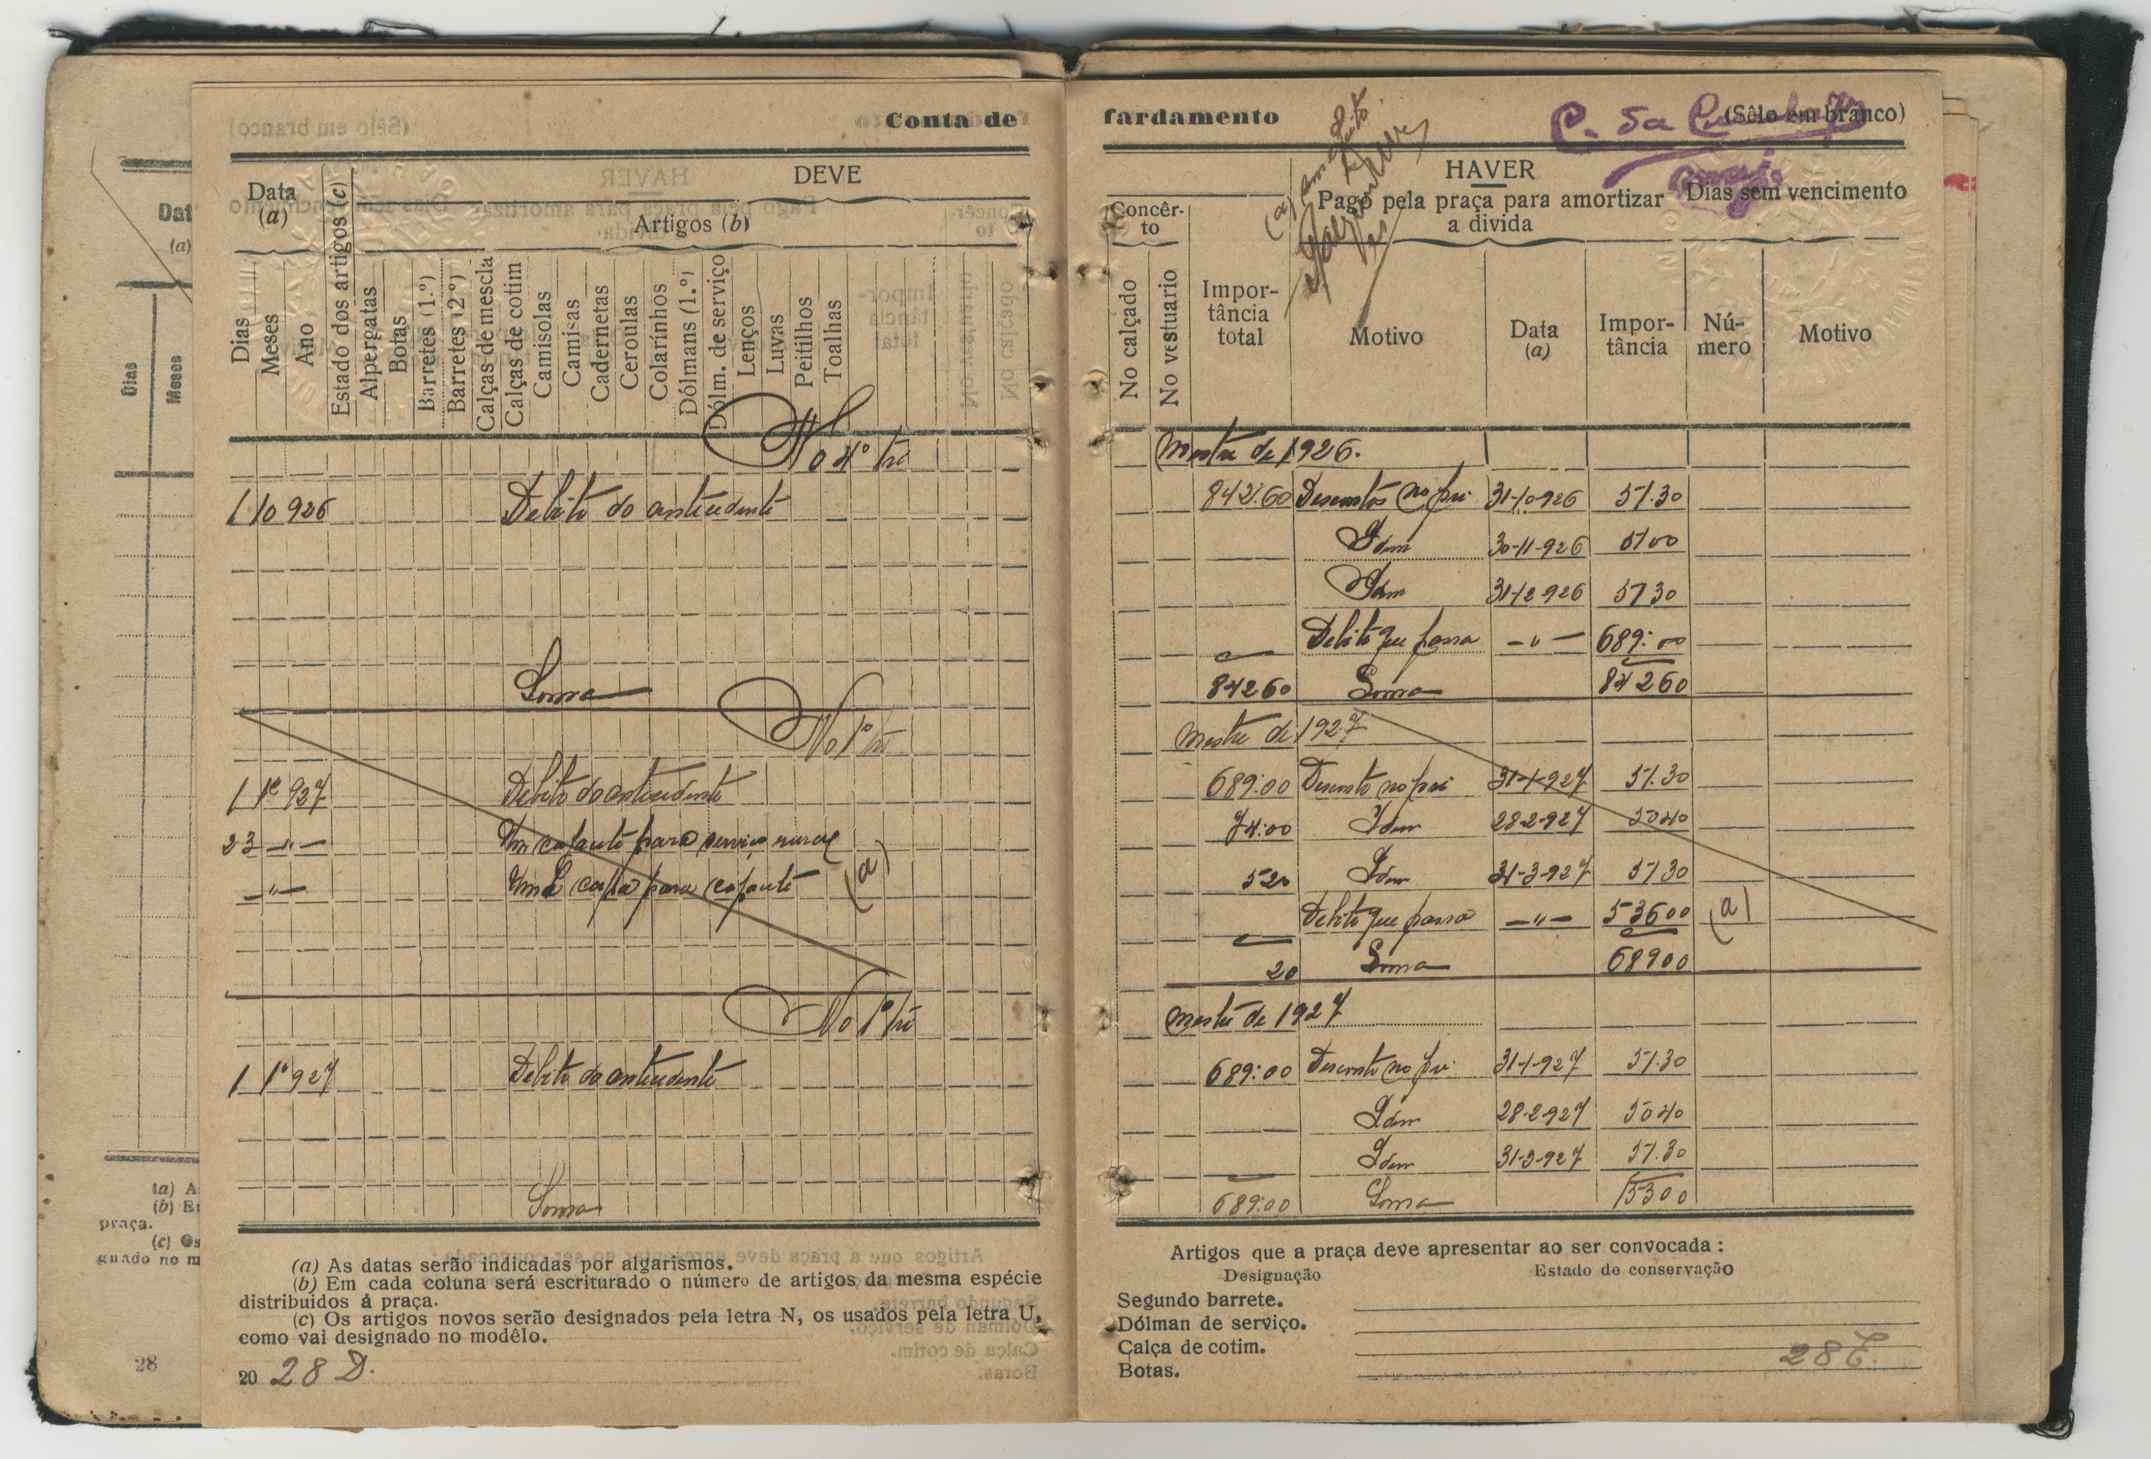 Conta de fardamento
(Sêlo em branco)
C. da
DEVE
Data
(a)
Artigos (b)
Dias
Meses
Ano
Estado dos artigos (c)
Alpergatas
Botas
Barretes (1.º)
Barretes (2.º)
Calças de mescla
Calças de cotim
Camisolas
Camisas
Cadernetas
Ceroulas
Colarinhos
Dólmans (1.º)
Dólm. de serviço
Lenços
Luvas
Peitilhos
Toalhas
HAVER
Concêrto
Pago pela praça para amortizar
a divida
Dias sem vencimento
No calçado
No vestuario
Importância total
Motivo
Data
(a)
Importância
Número
Motivo
(a) em
No 4º trimestre de 1926.
1 10 926 Debito do antecedente 842.60 Descontos no pré 31-10-926 51.30
Idem 30-11-926 51 00
Idem 31-12-926 51 30
Debito que passa — " — 689:00
Soma 842 60 Soma 842 60
No 1º trimestre de 1927
1 1º 927 Debito do antecedente 689:00 Desconto no pré 31-1-927 51.30
23 — " — Um capote para serviço 74:00 Idem 28-2-927 50 40
— " — Uma capa para capote (a) 520 Idem 31-3-927 51 30
Debito que passa — " — 536 00 (a)
20 Soma 689 00
No 1º trimestre de 1927
1 1º 927 Debito do antecedente 689:00 Desconto no pré 31-1-927 51.30
Idem 28-2-927 50 40
Idem 31-3-927 51.30
Soma 689:00 Soma 153 00
(a) As datas serão indicadas por algarismos.
(b) Em cada coluna será escriturado o número de artigos da mesma espécie
distribuidos á praça.
(c) Os artigos novos serão designados pela letra N, os usados pela letra U,
como vai designado no modêlo.
20 28 D.
Artigos que a praça deve apresentar ao ser convocada :
Designação Estado de conservação
Segundo barrete.
Dólman de serviço.
Calça de cotim.
Botas.
28 E.
Dat
(a)
Dias
Meses
(a) A
(b) E
praça.
(c) Os
gnado no m
28